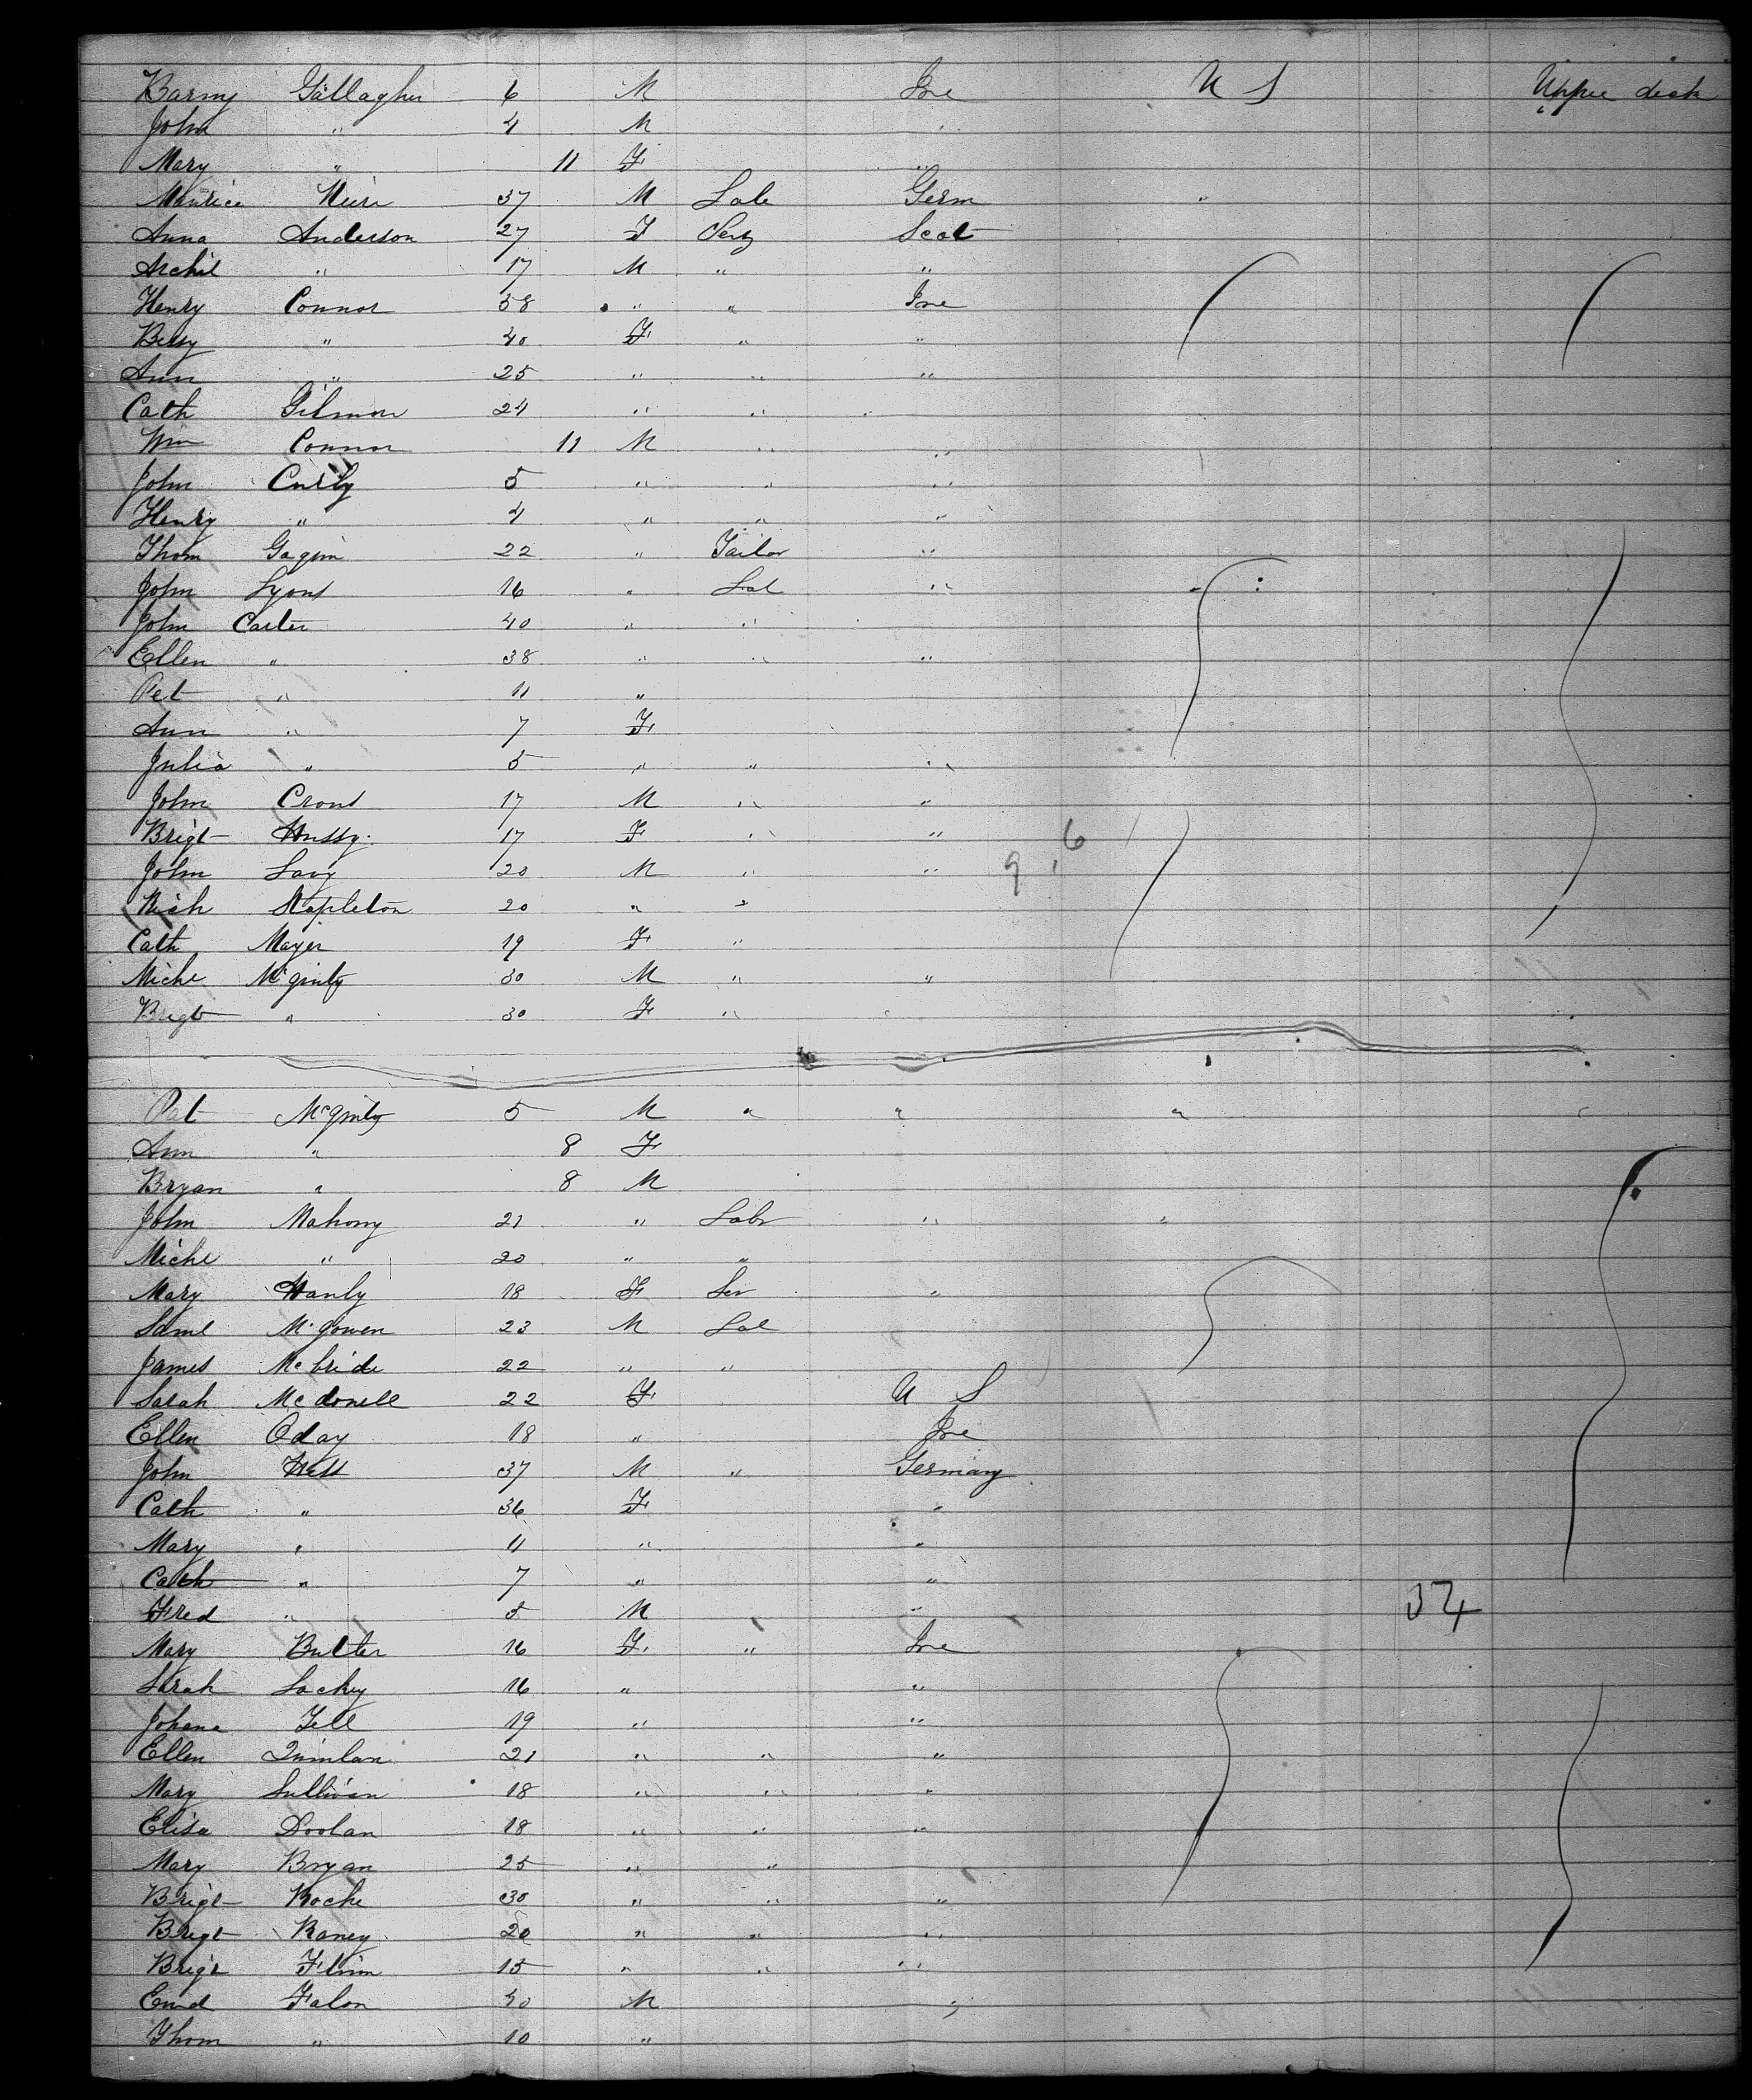 Barny Gallagher 6 M Ire U S Upper deck
John " 4 M "
Mary " 11 F "
Maurice 37 M Lab Germ "
Anna Anderson 27 F Scot
Archil " 17 M " "
Henry Connor 38 " " Ire
Bessy " 40 F " "
Ann " 25 " " "
Cath Gilmon 24 " "
Wm Connor 11 M " "
John 5 " " "
Henry " 4 " " "
Thom 22 " Tailor "
John Lyons 16 " Lab "
John Carter 40 " "
Ellen " 38 " " "
Pet " 11 "
Ann " 7 F
Julia " 5 " " "
John Crons 17 M " "
Brigt Hussy 17 F " " 6
John Lavy 20 M " " 9
Mich Stapleton 20 " "
Cath Mayer 19 F "
Miche McGinty 30 M " "
Brigt " 30 F " "
Pat McGinty 5 M " " "
Ann " 8 F
Bryan " 8 M
John Mahony 21 " Labr " "
Miche " 20 " "
Mary Hanly 18 F Ser "
Saml McGowen 23 M Lab
James McBride 22 " "
Sarah McDonell 22 F U S
Ellen Oday 18 " Ire
John Hess 37 M " Germany
Cath " 36 F "
Mary " 11 " "
Cath " 7 " "
Fred " 5 M " 34
Mary Butler 16 F " Ire
Sarah Lackey 16 " "
Johana Tell 19 " "
Ellen Quinlan 21 " " "
Mary Sullivan 18 " " "
Elisa Doolan 18 " " "
Mary Bryan 25 " "
Brigt Roche 30 " " "
Brigt Raney 20 " " "
Brigt Flinn 15 " " "
Emd Falon 40 M "
Thom " 10 "